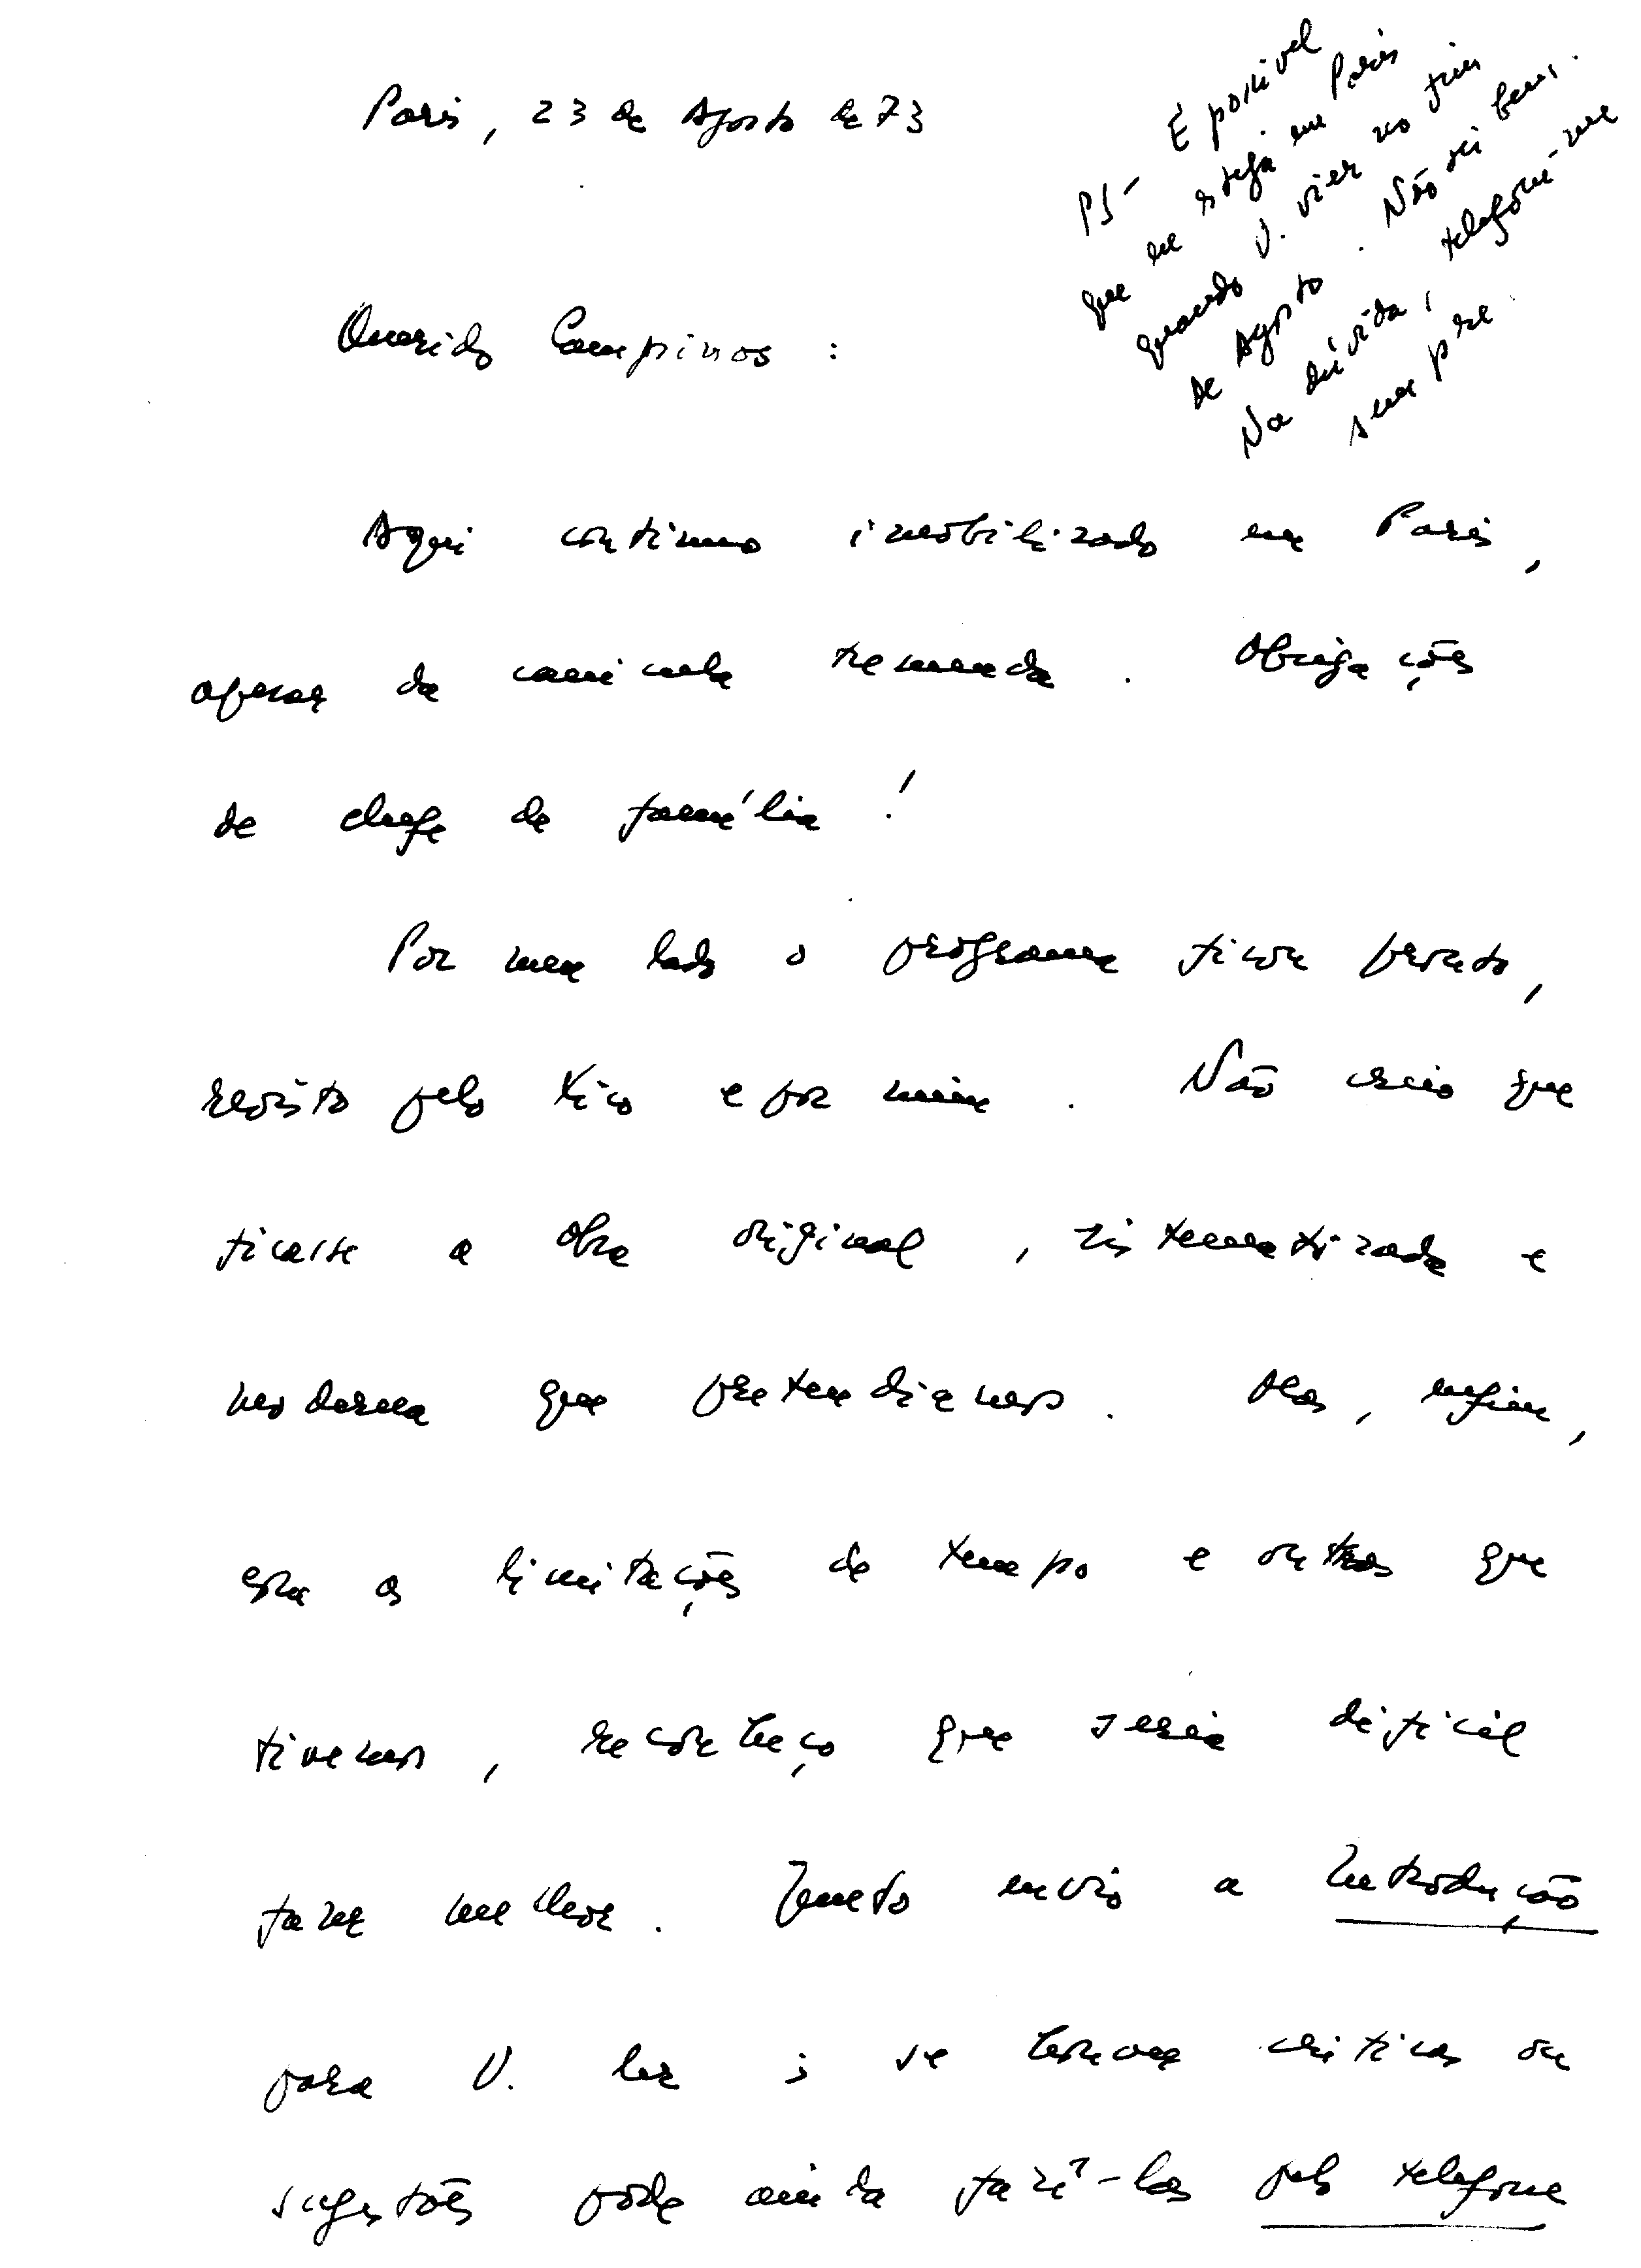 Paris, 23 de Agosto de 73
PS - É possível
que me esteja em Paris
quando V. vier no fim
de Agosto. Não sei bem.
Na dúvida, telefone-me
sempre.
Querido Campinos:
Aqui continuo imobilizado em Paris,
apesar da canicula tremenda. Obrigações
de chefe de família!
Por meu lado o programa ficou pronto,
revisto pelo Tito e por mim. Não creio que
ficasse a obra original, sistematizada e
moderna que pretendiamos. Mas, enfim,
com as limitações de tempo e outras que
tivemos, reconheço que seria difícil
fazer melhor. Junto envio a Introdução
para V. ler; se houver criticas ou
sugestões pode ainda fazê-las pelo telefone